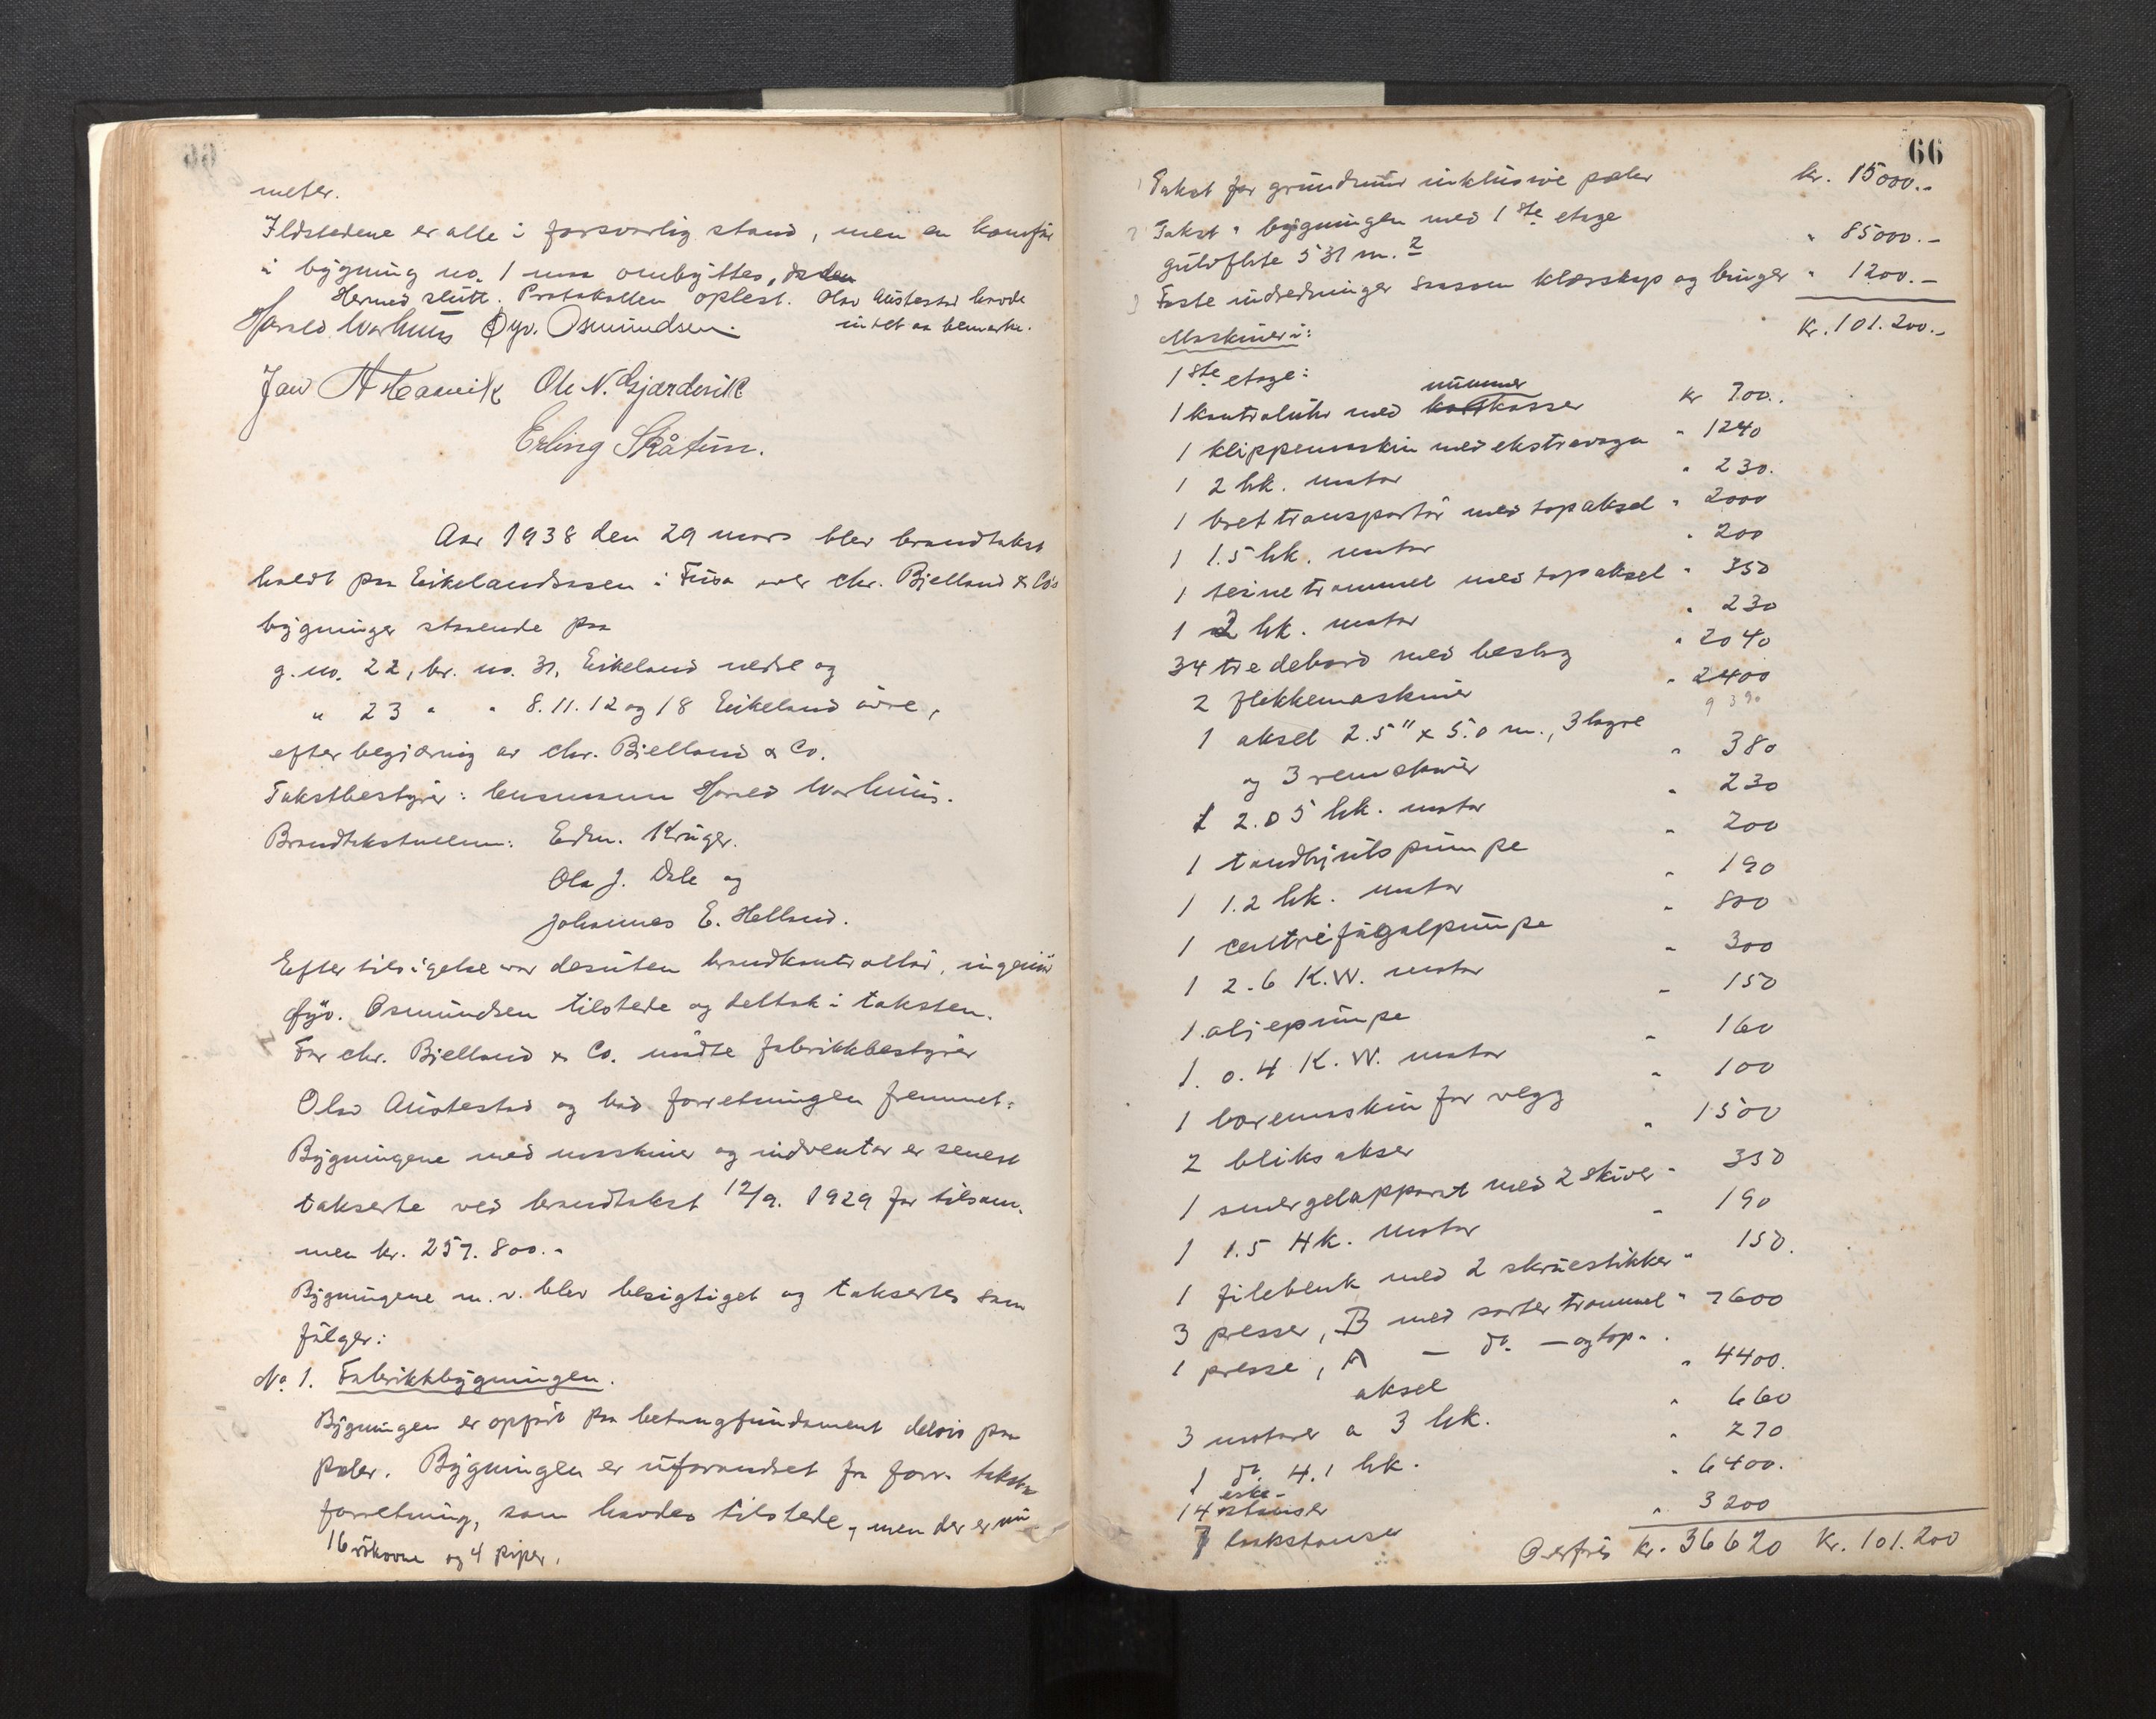 meter.
Ildstedene er alle i forsvarlig stand, men en komfür
i bygning no. 1 maa ombyttes, da den
Hermed slütt. Protokollen oplest. Olav Austestad havde
intet aa bemerke.
Harald Warhuus Øyv. Osmundsen.
Jan A Haavik Ole N. Gjærdevik
Erling Skåtun.
Aar 1938 den 29 mars blev brandtakst
holdt paa Eikelandsosen i Füsa over Chr. Bjelland & Co's
bygninger staaende paa
g. no. 22, br. no. 31, Eikeland nedre og
" 23 " " 8. 11. 12 og 18 Eikeland övre,
efter begjæring av Chr. Bjelland & Co.
Takstbestyrer: lensmann Harald Warhuus.
Brandtakstmenn: Edm. Krüger.
Ola J. Dale og
Johannes E. Helland.
Efter tilsigelse var desuten brandkontrollör, ingeniör
Øyv. Osmundsen tilstede og deltok i taksten.
For Chr. Bjelland & Co. mödte fabrikkbestyrer
Olav Austestad og bad forretningen fremmet.
Bygningene med maskiner og indventar er senest
takserte ved brandtakst 12/9. 1929 for tilsam-
men kr. 257.800.-
Bygningene m. v. blev besigtiget og taksertes som
fölger:
No 1. Fabrikkbygningen.
Bygningen er opfört paa betongfundament delvis paa
pæler. Bygningen er uforandret fra forr. takst-
forretning, som havdes tilstede, men der er nü
16 rökovne og 4 piper.
66
1 Takst for grundmur inklusive pæler kr. 15000.-
2 Takst " bygningen med 1ste etage
gulvflate 531 m.2 " 85000.-
3 Faste indredninger saasom klærskap og binger " 1200.-
Kr. 101.200.-
Maskiner i:
1ste etage:
nummer
1 kontrolühr med kasser kr 700..
1 klippemaskin med ekstravogn " 1240
1 2 hk. motor " 230.
1 brettransportör med topaksel " 2000
1 1.5 hk. motor " 200
1 seinetrommel med topaksel " 350
1 2 hk. motor " 230
34 tredebord med beslag " 2040
2 flekkemaskiner " 2400
9390
1 aksel 2.5" x 5.0 m., 3 lagre
og 3 remskiver " 380
1 2.05 hk. motor " 230
1 tandhjulspumpe " 200
1 1.2 hk. motor " 190
1 centrifugalpumpe " 800
1 2.6 K.W. motor " 300
1 oljepumpe " 150
1. 0.4 K.W. motor " 160
1 boremaskin for vegg " 100
2 bliksakser " 1500
1 smergelapparat med 2 skiver " 350
1 1.5 Hk. motor " 190
1 filebenk med 2 skruestikker " 150.
3 presser, B med sorter trommel " 7600
1 presse, A — do. — og top-
aksel " 4400.
3 motorer a 3 hk. " 660
1 do. 4.1 hk. " 270
eske-
14 stanser " 6400.
7 lokkstanser " 3200
Overföres kr. 36620 Kr. 101.200